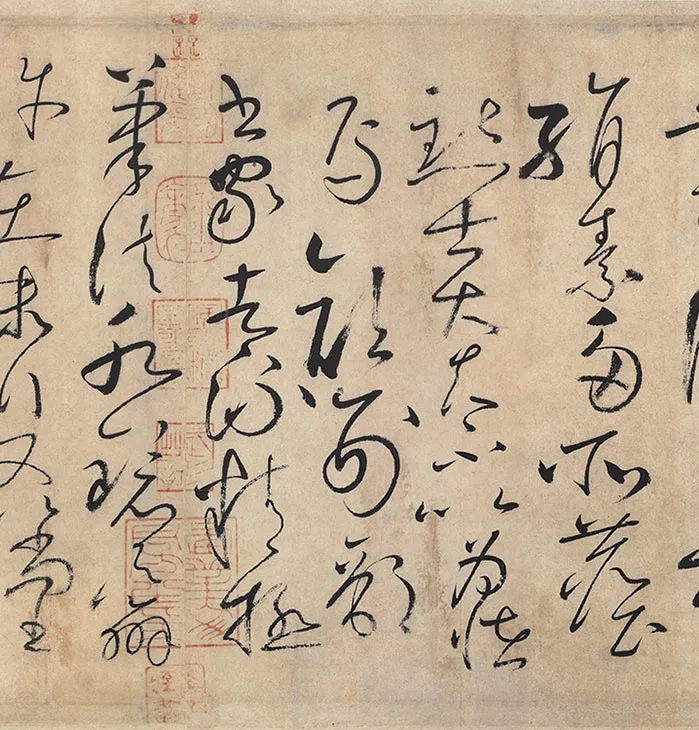 絹素多所塵
點士大夫不以為怪
焉顏刑部
書家者流精極
筆法水鏡之辨
許在末行又以尚書